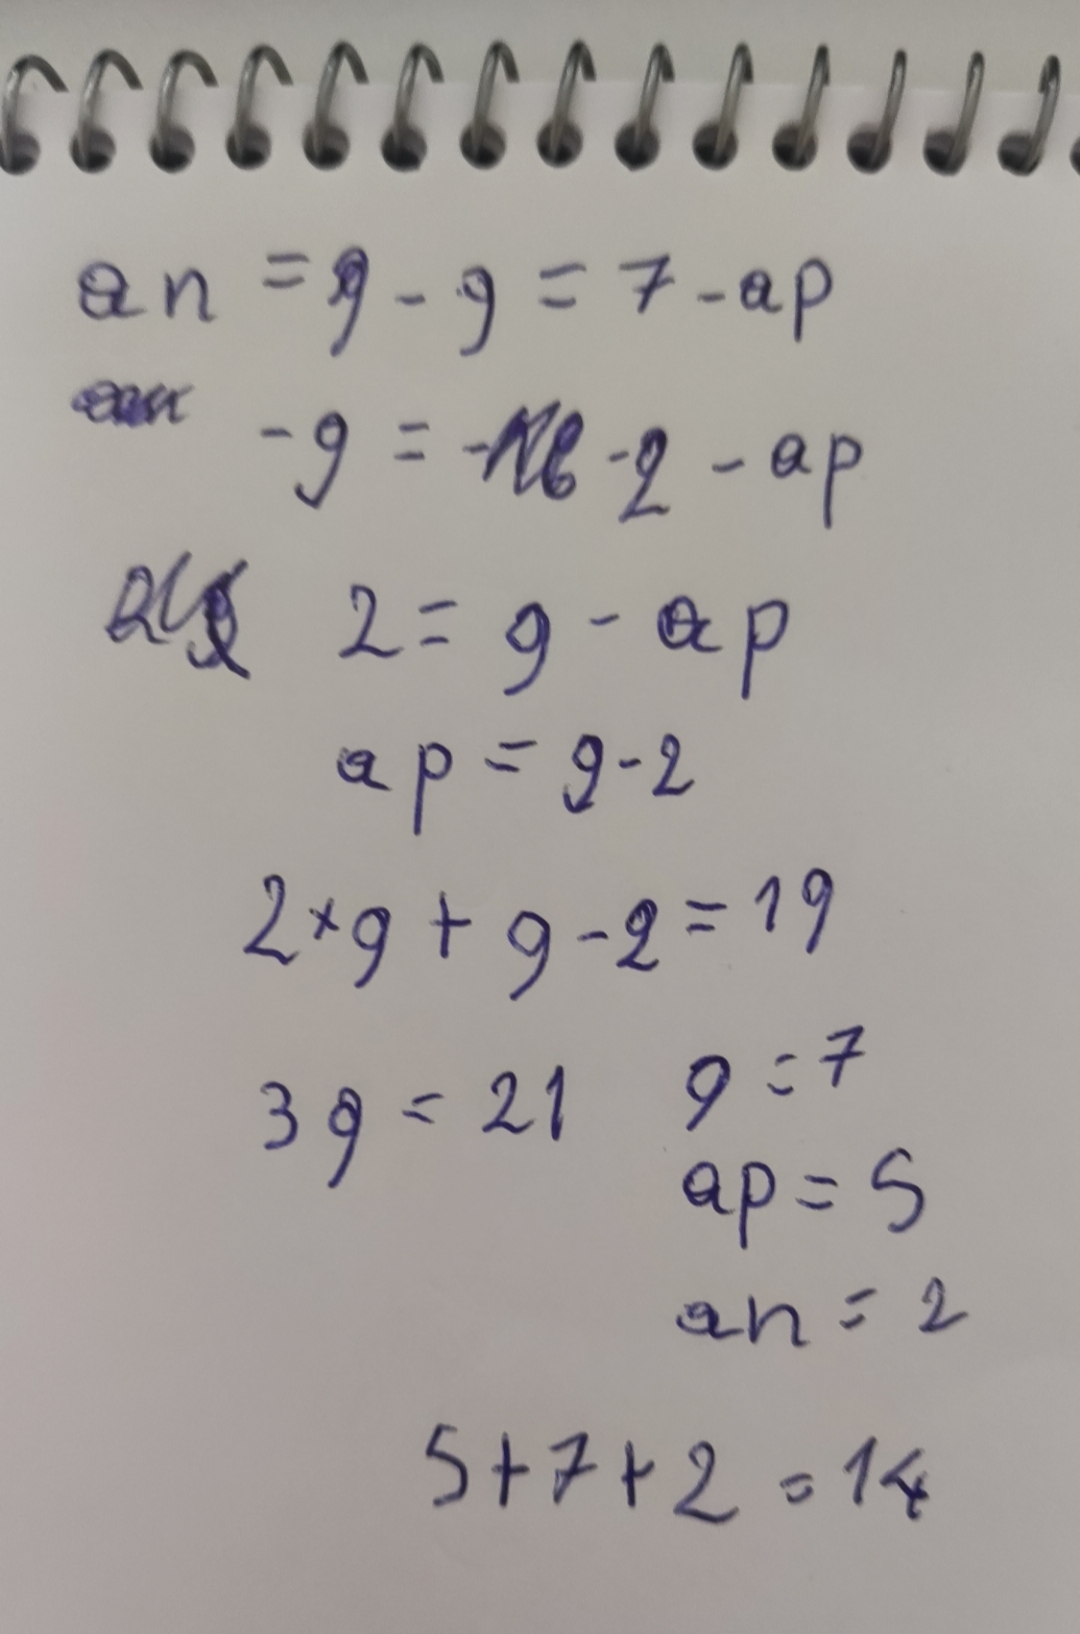 an = 9 - g = 7 - ap
-g = -2 - ap
2 = g - ap
ap = g - 2
2 × g + g - 2 = 19
3g = 21 g = 7
ap = 5
an = 2
5 + 7 + 2 = 14